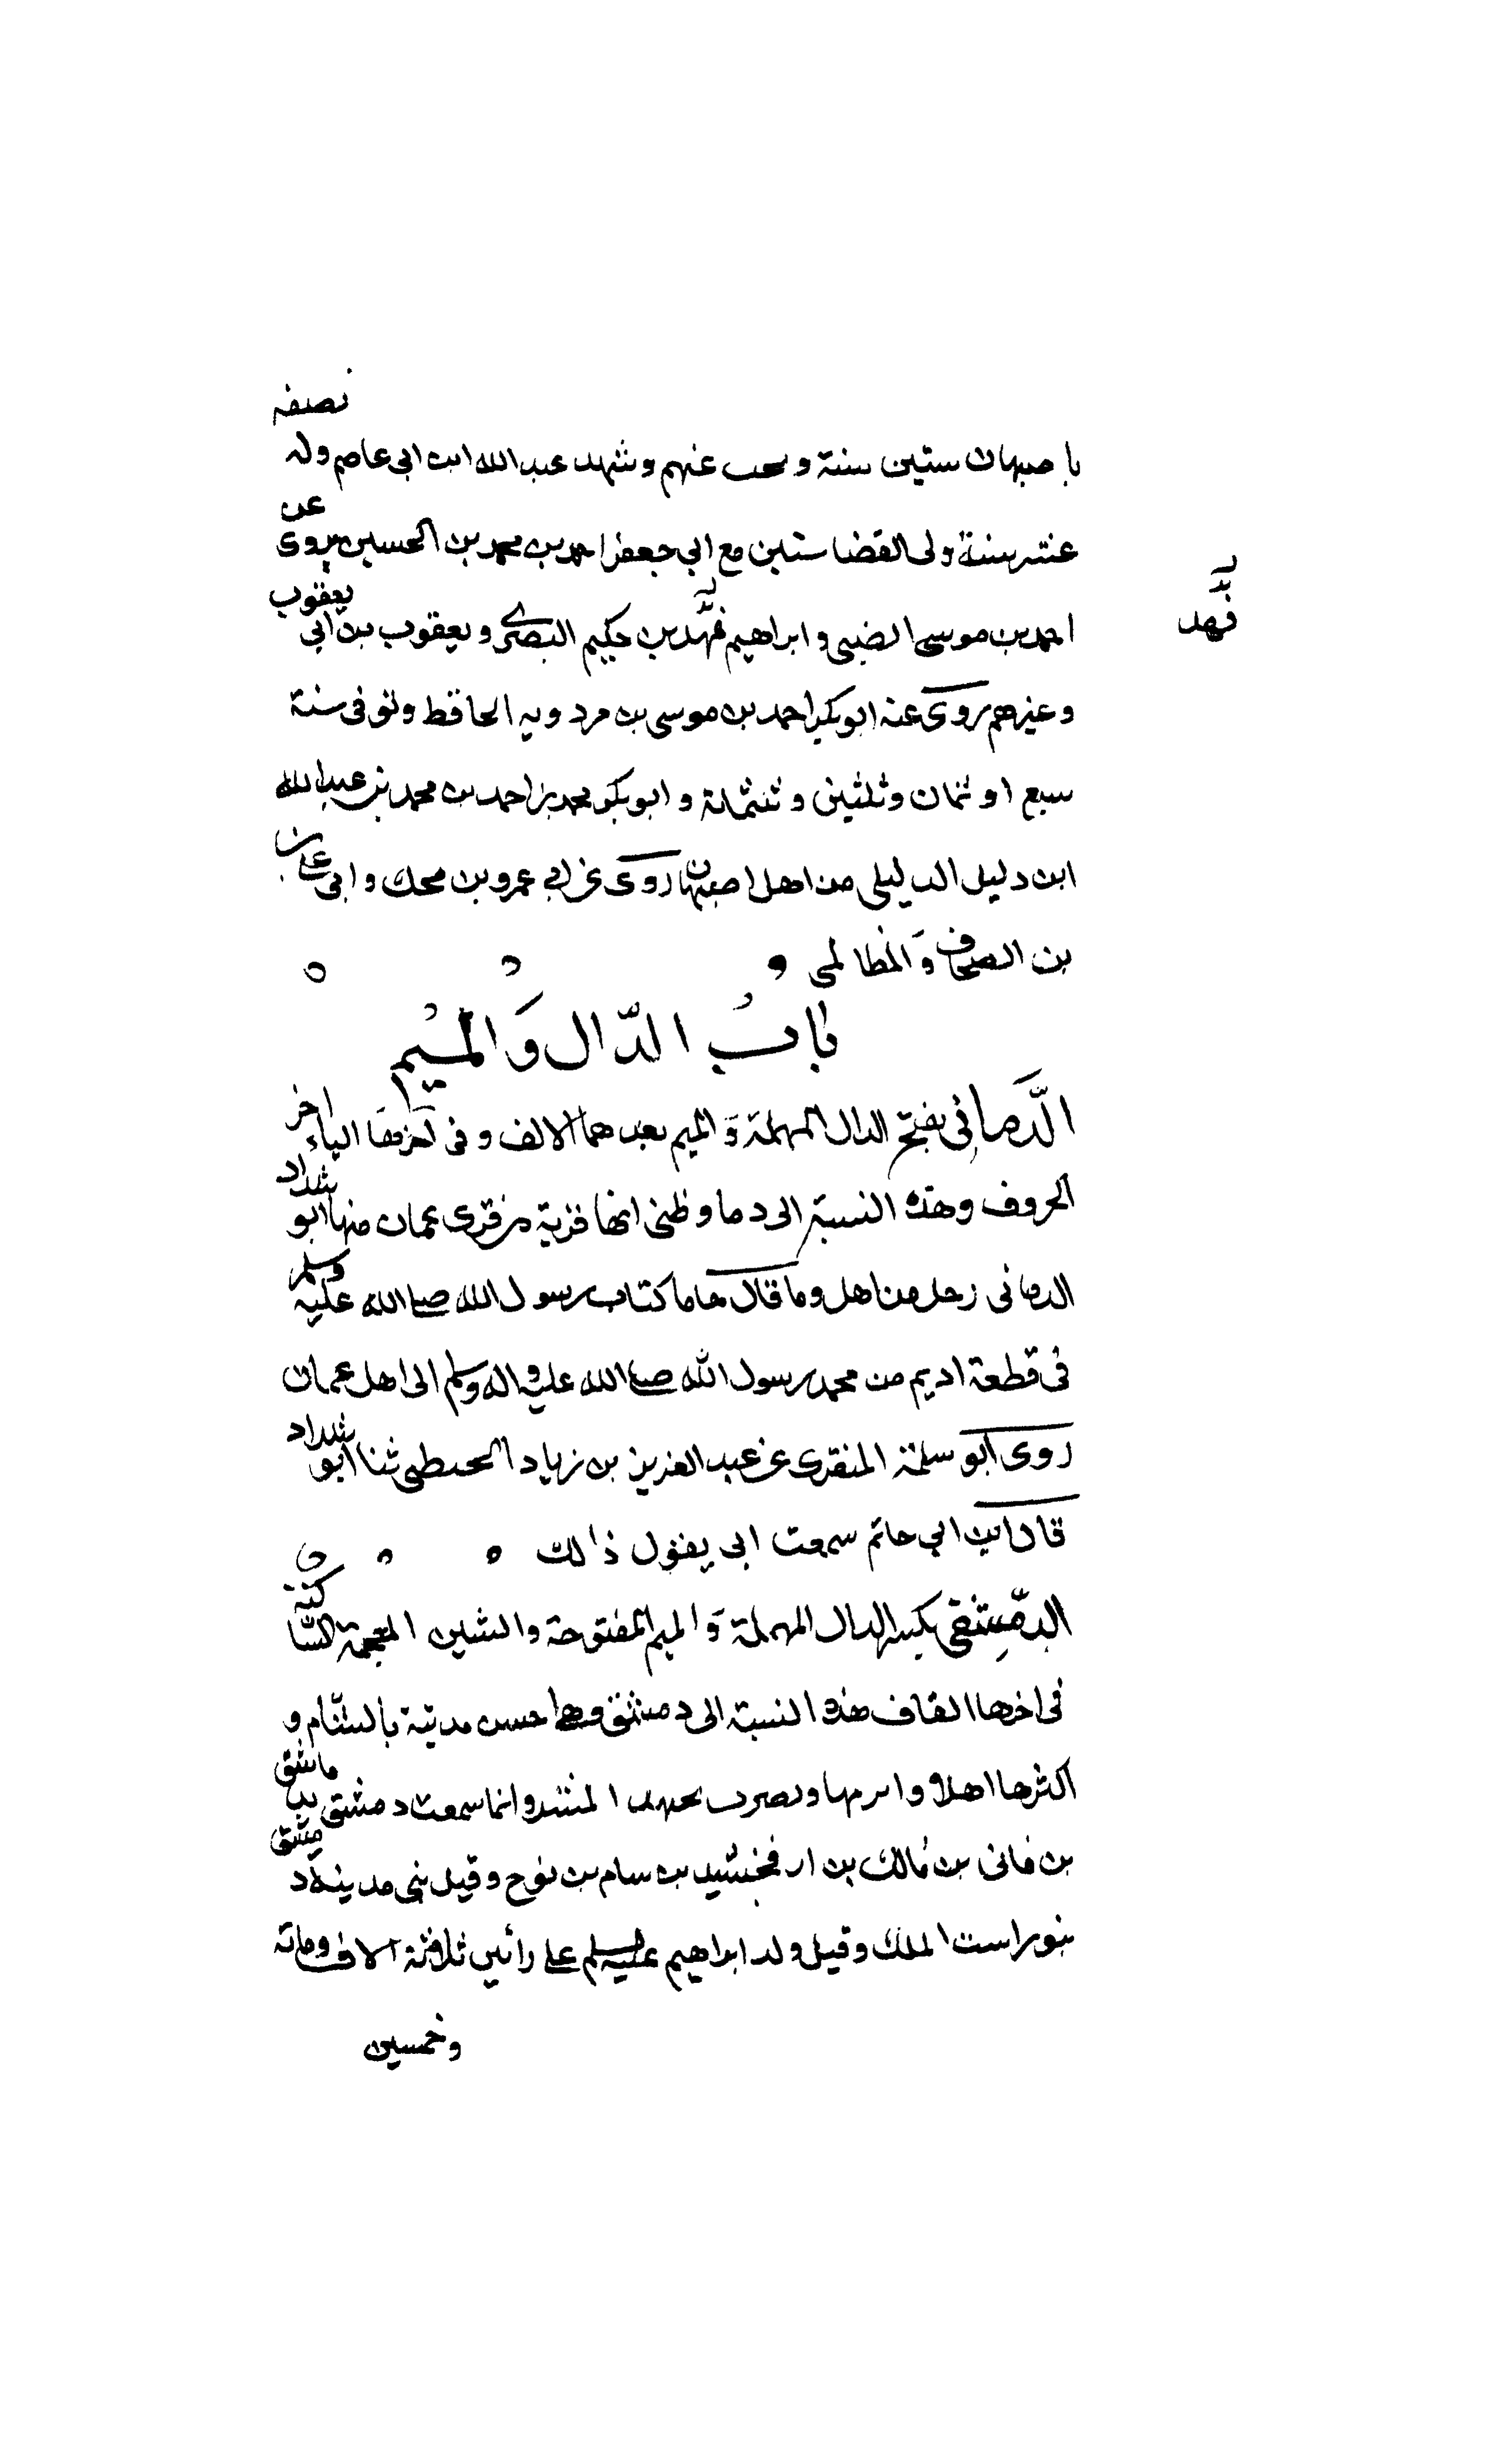 باصبهان ستين سنة وكتب عنهم وشهد عبد الله ابن ابي عاصم وله نصفه
عشر سنة ولى القضا سنتين مع ابي جعفر احمد بن محمد بن الحسين يروى عن
احمد بن موسى الضبي و ابراهيم فهد بن حكيم البصرى و يعقوب بن ابي يعقوب
فهد
وغيرهم روى عنه ابو بكر احمد بن موسى بن مردويه الحافظ وتوفى سنة
سبع او ثمان وثلثين و ثلثمائة و ابو بكر محمد بن احمد بن محمد بن عبد الله
ابن دليل الدليلى من اهل اصبهان روى عن ابي عمرو بن محمك و ابى
بن الصحاف وَالمظالمى
بَابُ الدّال وَالمْيم
الدَّماني بفتح الدال المهملة وَ الميم بعدهما الالف و فى آخرها الياء اخر
الحروف وهذه النسبة الى دما وظنى انها قرية من قرى عمان منها ابو شداد
الدمانى رجل من اهل دما قال جاءنا كتاب رسول الله صلى الله عليه وسلم
فى قطعة اديم من محمد رسول الله صلى الله عليه واله وسلم الى اهل عمان
روى ابو سلمة المنقرى عن عبد العزيز بن زياد الحبطى ثنا ابو شداد
قال ابن ابي حاتم سمعت ابى يقول ذالك
الدمشقى بكسر الدال المهملة وَ الميم المفتوحة والشين المعجمة الساكنة
فى اخرها القاف هذه النسبة الى دمشق وهى احسن مدينة بالشام و
اكثرها اهلا و انما سمعت دمشق
بن قانى بن مالك بن ارفخشيد بن سام بن نوح وقيل بنى مدينة دمشق
بنوراست الملك وقيل ولد ابراهيم عليه السلم على رأس ثلاثة الاف ومائة
وخمسين